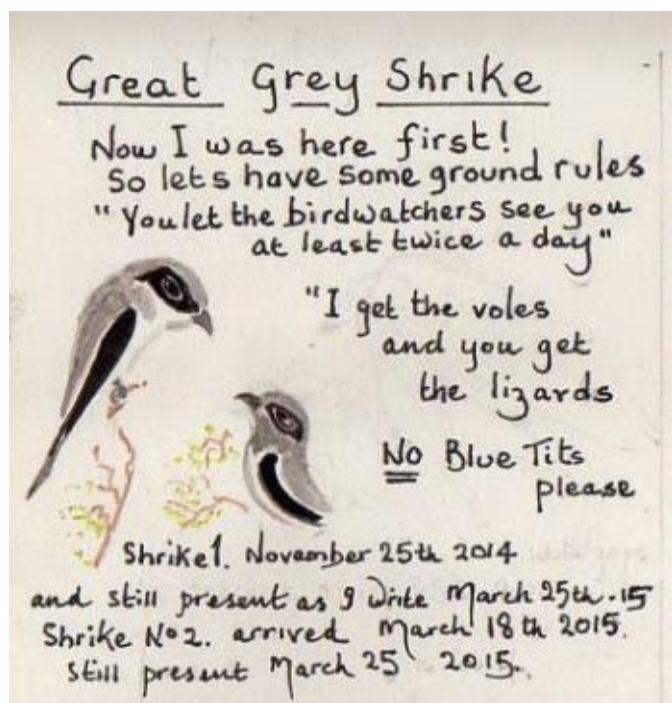 Great Grey Shrike
Now I was here first!
So lets have some ground rules
"You let the birdwatchers see you
at least twice a day"
"I get the voles
and you get
the lizards
No Blue Tits
please
Shrike 1. November 25th 2014
and still present as I write March 25th.15
Shrike No 2. arrived March 18th 2015.
still present March 25 2015.